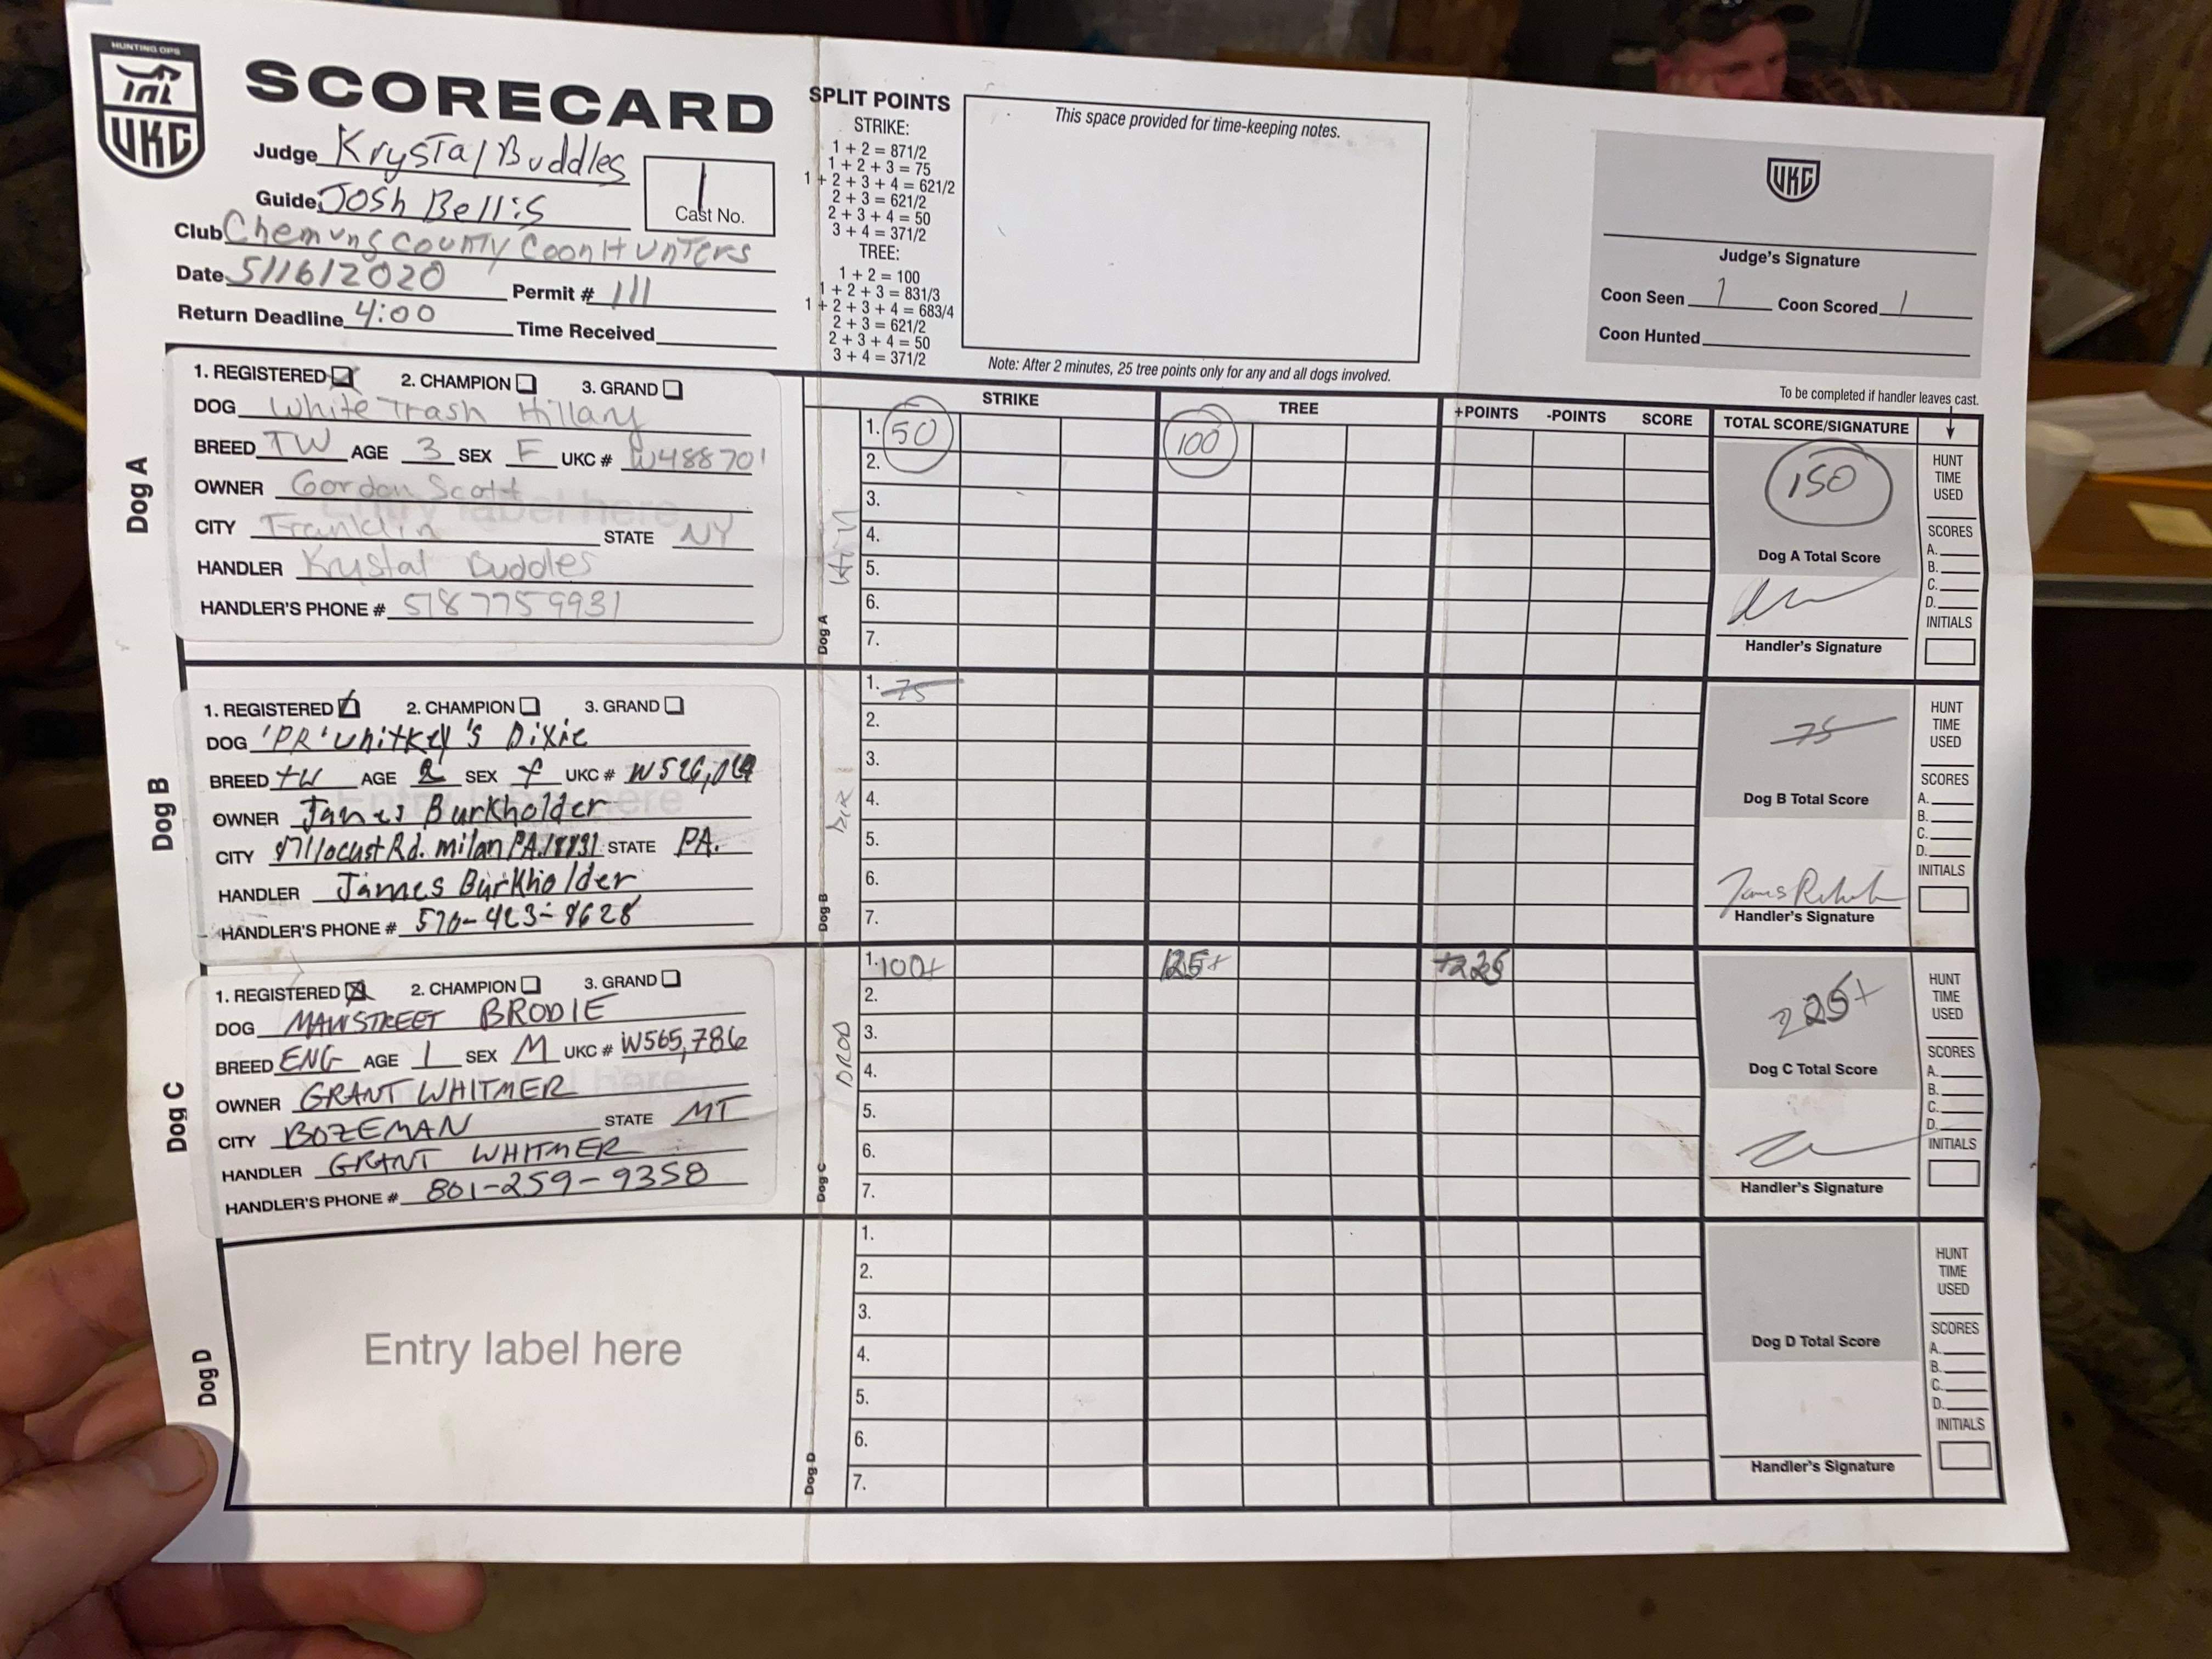 HUNTING OPS
UKC
SCORECARD
Judge Krystal Buddles
Guide Josh Bellis
1
Cast No.
Club Chemung County Coon Hunters
Date 5/16/2020 Permit # 111
Return Deadline 4:00 Time Received
SPLIT POINTS
STRIKE:
1 + 2 = 871/2
1 + 2 + 3 = 75
1 + 2 + 3 + 4 = 621/2
2 + 3 = 621/2
2 + 3 + 4 = 50
3 + 4 = 371/2
TREE:
1 + 2 = 100
1 + 2 + 3 = 831/3
1 + 2 + 3 + 4 = 683/4
2 + 3 = 621/2
2 + 3 + 4 = 50
3 + 4 = 371/2
This space provided for time-keeping notes.
Note: After 2 minutes, 25 tree points only for any and all dogs involved.
UKC
Judge's Signature
Coon Seen 1 Coon Scored 1
Coon Hunted
To be completed if handler leaves cast.
STRIKE TREE +POINTS -POINTS SCORE TOTAL SCORE/SIGNATURE
Dog A
1. REGISTERED 2. CHAMPION 3. GRAND
DOG White Trash Hillary
BREED TW AGE 3 SEX F UKC # W488701
OWNER Gordon Scott
Entry label here
CITY Franklin STATE NY
HANDLER Krystal Buddles
HANDLER'S PHONE # 5187759931
Dog A
1. 50 100
2.
3.
4.
5.
6.
7.
150
Dog A Total Score
Handler's Signature
HUNT
TIME
USED
SCORES
A.
B.
C.
D.
INITIALS
Dog B
1. REGISTERED 2. CHAMPION 3. GRAND
DOG 'PR' Whitkey's Dixie
BREED tw AGE 2 SEX f UKC #
OWNER James Burkholder
Entry label here
CITY locust Rd. milan PA. STATE PA.
HANDLER James Burkholder
HANDLER'S PHONE # 570-423-8628
Dog B
DIX
1. 75
2.
3.
4.
5.
6.
7.
75
Dog B Total Score
Handler's Signature
HUNT
TIME
USED
SCORES
A.
B.
C.
D.
INITIALS
Dog C
1. REGISTERED 2. CHAMPION 3. GRAND
DOG MAINSTREET BRODIE
BREED ENG AGE 1 SEX M UKC # W565,786
OWNER GRANT WHITMER
CITY BOZEMAN STATE MT
HANDLER GRANT WHITMER
HANDLER'S PHONE # 801-259-9358
Dog C
BROD
1. 100+ 125+ +225
2.
3.
4.
5.
6.
7.
225+
Dog C Total Score
Handler's Signature
HUNT
TIME
USED
SCORES
A.
B.
C.
D.
INITIALS
Dog D
Entry label here
Dog D
1.
2.
3.
4.
5.
6.
7.
Dog D Total Score
Handler's Signature
HUNT
TIME
USED
SCORES
A.
B.
C.
D.
INITIALS